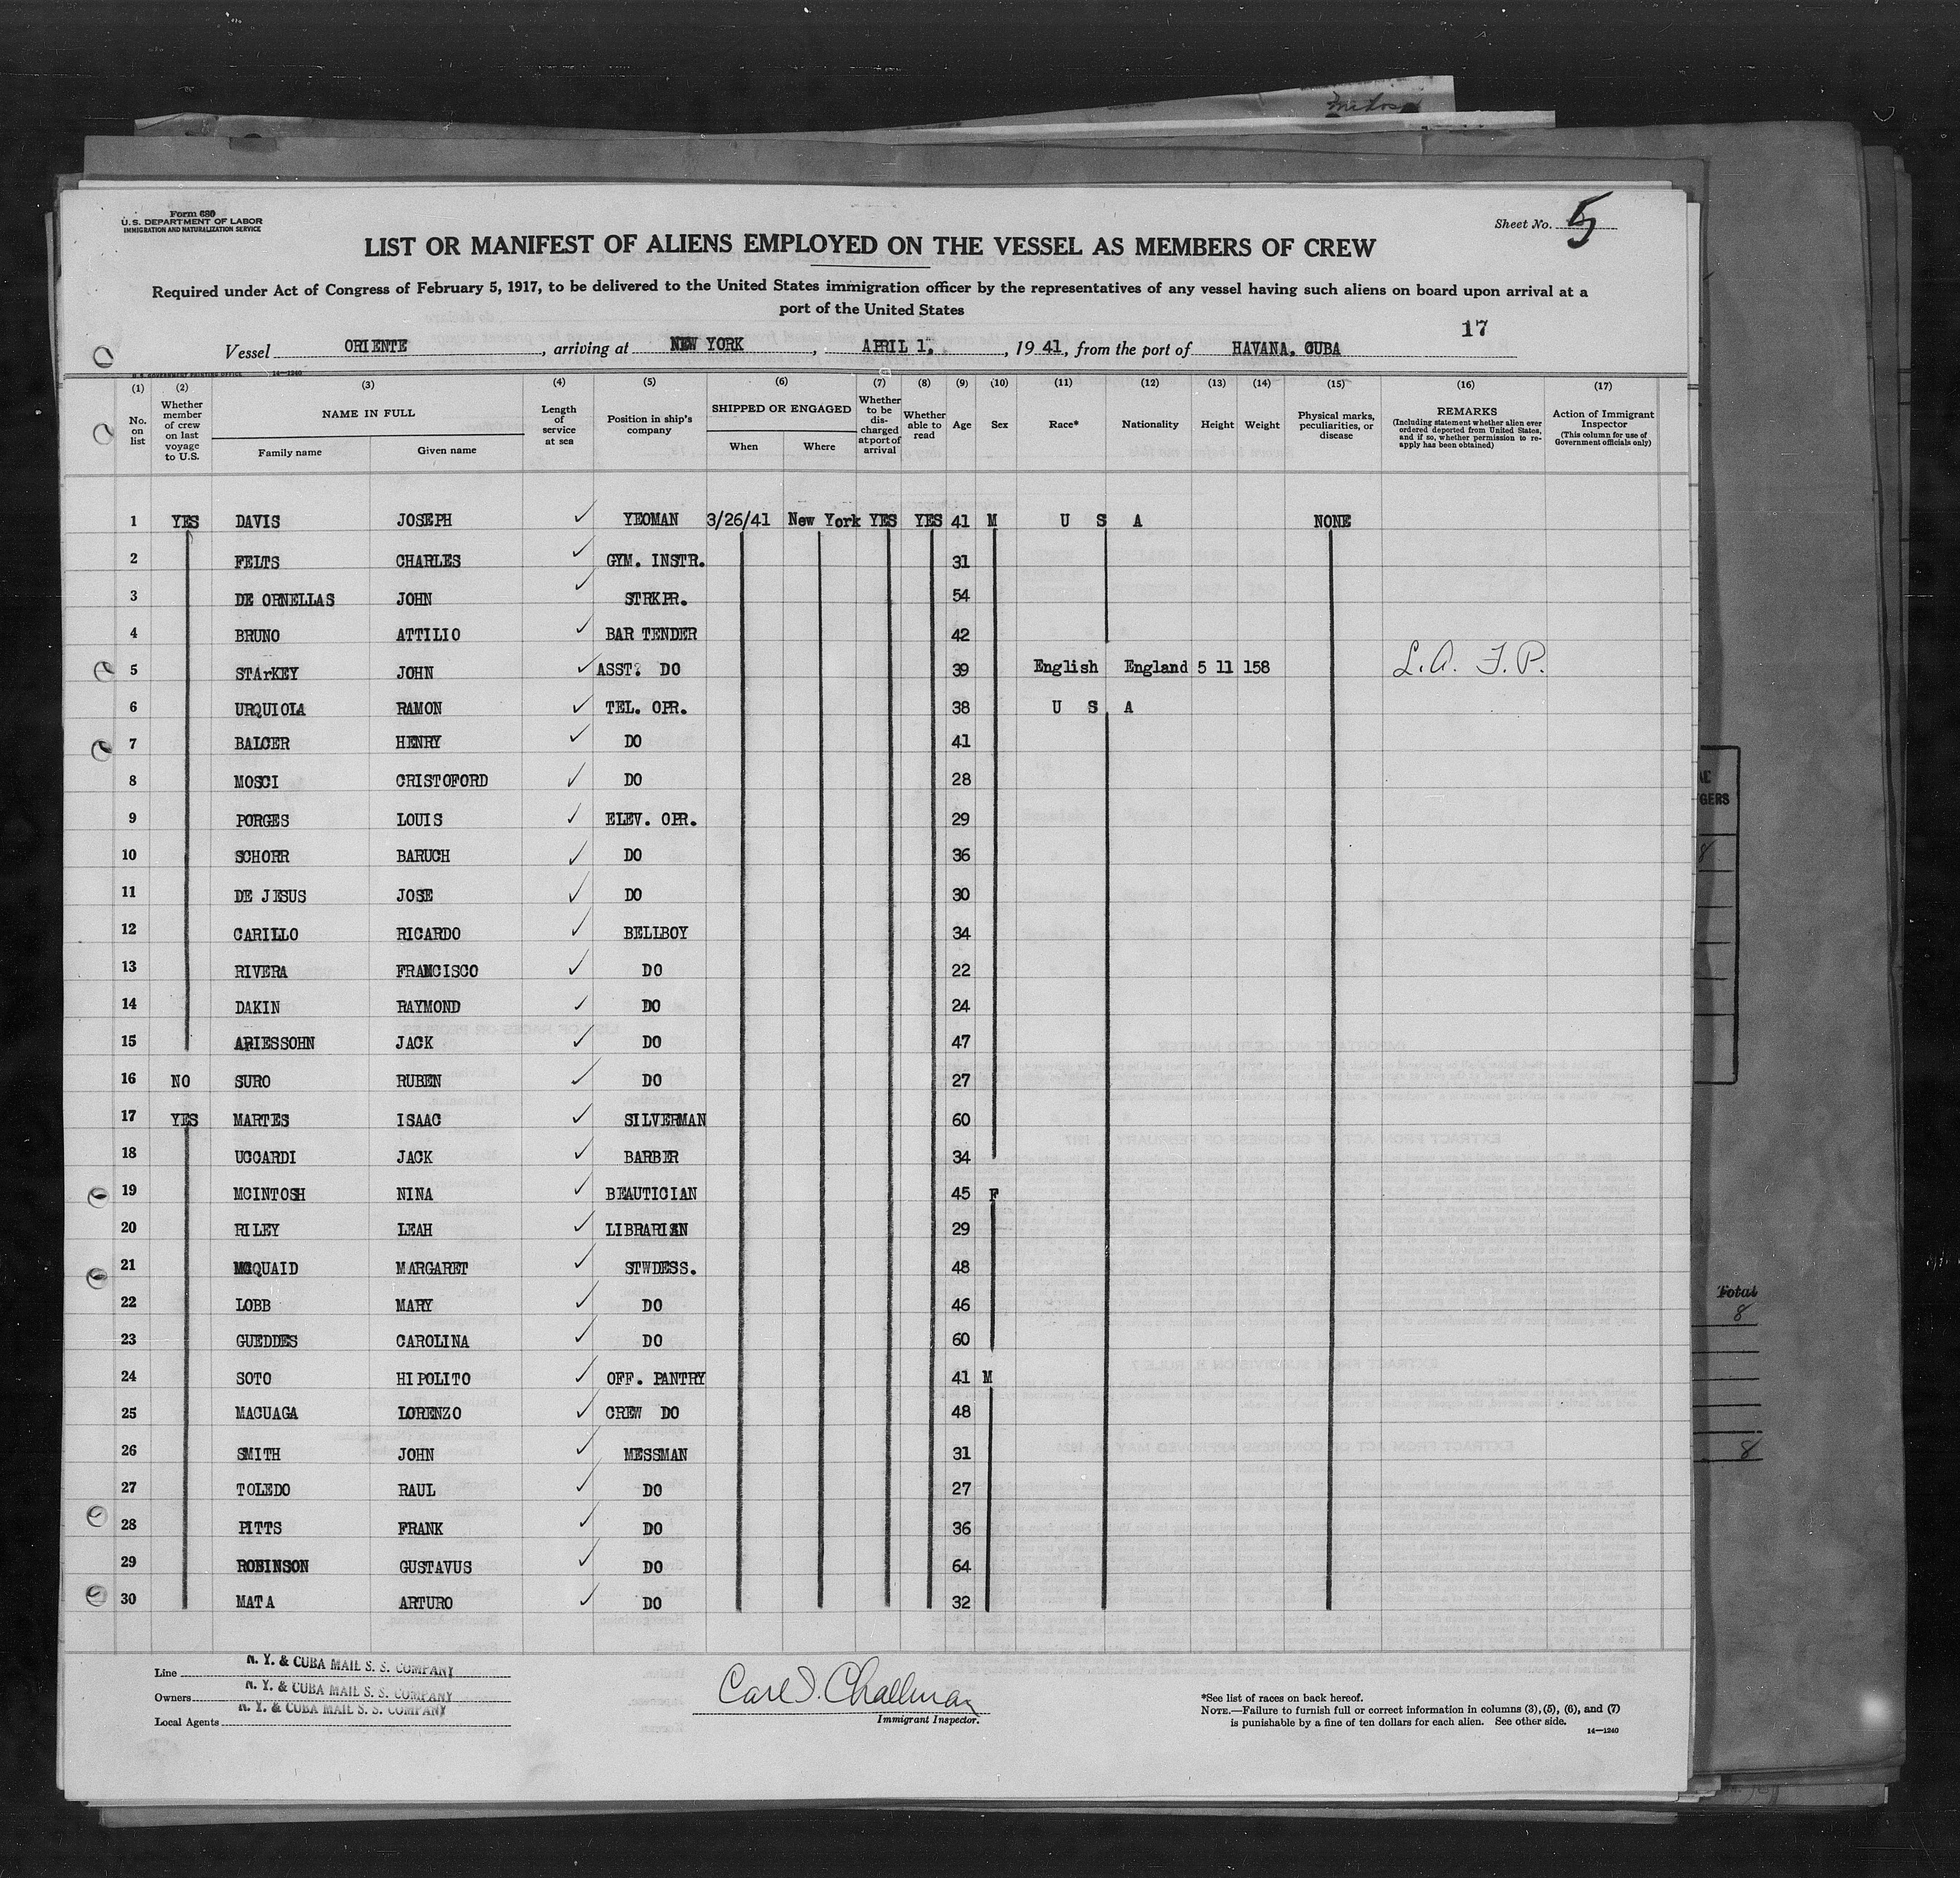 Form 680
U.S. DEPARTMENT OF LABOR
IMMIGRATION AND NATURALIZATION SERVICE
Sheet No. 5
LIST OR MANIFEST OF ALIENS EMPLOYED ON THE VESSEL AS MEMBERS OF CREW
Required under Act of Congress of February 5, 1917, to be delivered to the United States immigration officer by the representatives of any vessel having such aliens on board upon arrival at a
port of the United States
17
Vessel ORIENTE, arriving at NEW YORK, APRIL 1, 1941, from the port of HAVANA, CUBA
U.S. GOVERNMENT PRINTING OFFICE 14—1240
(1) (2) (3) (4) (5) (6) (7) (8) (9) (10) (11) (12) (13) (14) (15) (16) (17)
No. on list
Whether member of crew on last voyage to U.S.
NAME IN FULL
Family name
Given name
Length of service at sea
Position in ship's company
SHIPPED OR ENGAGED
When
Where
Whether to be discharged at port of arrival
Whether able to read
Age
Sex
Race*
Nationality
Height
Weight
Physical marks, peculiarities, or disease
REMARKS
(Including statement whether alien ever ordered deported from United States, and if so, whether permission to reapply has been obtained)
Action of Immigrant Inspector
(This column for use of Government officials only)
1 YES DAVIS JOSEPH ✓ YEOMAN 3/26/41 New York YES YES 41 M U S A NONE
2 FELTS CHARLES ✓ GYM. INSTR. 31
3 DE ORNELLAS JOHN ✓ STRKPR. 54
4 BRUNO ATTILIO ✓ BAR TENDER 42
5 STArKEY JOHN ✓ ASST. DO 39 English England 5 11 158 L.A. F.P.
6 URQUIOLA RAMON ✓ TEL. OPR. 38 U S A
7 BALCER HENRY ✓ DO 41
8 MOSCI CRISTOFORD ✓ DO 28
9 PORGES LOUIS ✓ ELEV. OPR. 29
10 SCHORR BARUCH ✓ DO 36
11 DE JESUS JOSE ✓ DO 30
12 CARILLO RICARDO ✓ BELLBOY 34
13 RIVERA FRANCISCO ✓ DO 22
14 DAKIN RAYMOND ✓ DO 24
15 ARIESSOHN JACK ✓ DO 47
16 NO SURO RUBEN ✓ DO 27
17 YES MARTES ISAAC ✓ SILVERMAN 60
18 UCCARDI JACK ✓ BARBER 34
19 MCINTOSH NINA ✓ BEAUTICIAN 45 F
20 RILEY LEAH ✓ LIBRARIAN 29
21 MCQUAID MARGARET ✓ STWDESS. 48
22 LOBB MARY ✓ DO 46
23 GUEDDES CAROLINA ✓ DO 60
24 SOTO HIPOLITO ✓ OFF. PANTRY 41 M
25 MACUAGA LORENZO ✓ CREW DO 48
26 SMITH JOHN ✓ MESSMAN 31
27 TOLEDO RAUL ✓ DO 27
28 PITTS FRANK ✓ DO 36
29 ROBINSON GUSTAVUS ✓ DO 64
30 MATA ARTURO ✓ DO 32
Line N. Y. & CUBA MAIL S. S. COMPANY
Owners N. Y. & CUBA MAIL S. S. COMPANY
Local Agents N. Y. & CUBA MAIL S. S. COMPANY
Carl I. Challman
Immigrant Inspector.
*See list of races on back hereof.
NOTE.—Failure to furnish full or correct information in columns (3), (5), (6), and (7)
is punishable by a fine of ten dollars for each alien. See other side.
14—1240
GERS
8
Total
8
8